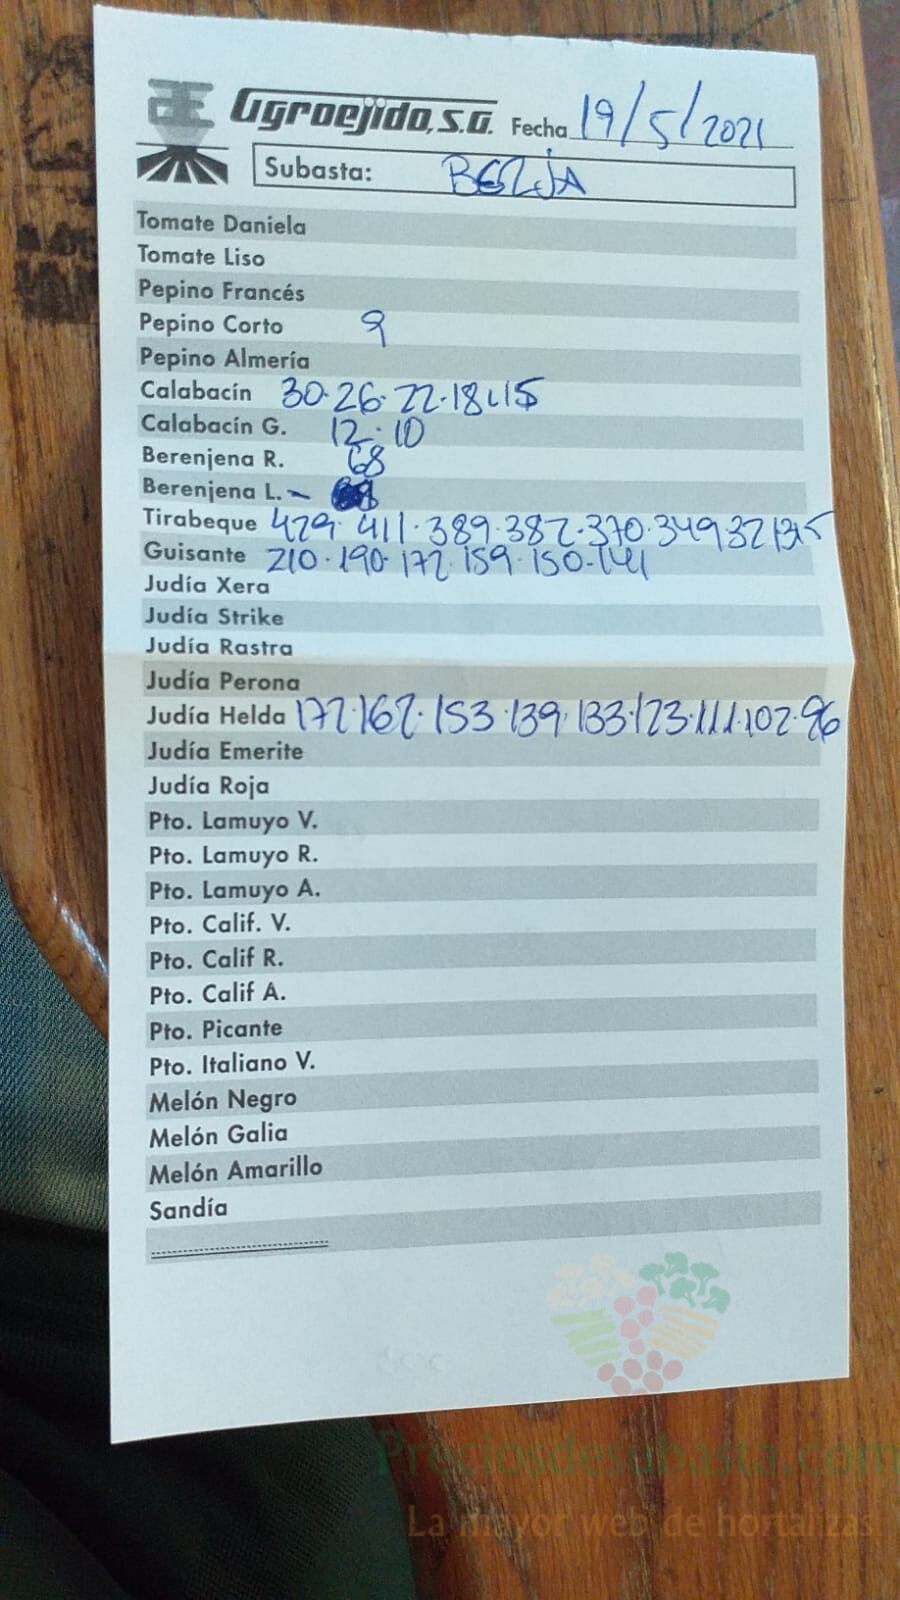 Agroejido, S.A. Fecha 19/5/2021
Subasta: BERJA
Tomate Daniela
Tomate Liso
Pepino Francés
Pepino Corto 9
Pepino Almería
Calabacín 30. 26. 22. 18. 15
Calabacín G. 12. 10
Berenjena R. 68
Berenjena L. -
Tirabeque 429. 411. 389. 382. 370. 349 321
Guisante 210. 190. 172. 159. 150. 141
Judía Xera
Judía Strike
Judía Rastra
Judía Perona
Judía Helda 172. 162. 153. 139. 133. 123. 111. 102. 96
Judía Emerite
Judía Roja
Pto. Lamuyo V.
Pto. Lamuyo R.
Pto. Lamuyo A.
Pto. Calif. V.
Pto. Calif R.
Pto. Calif A.
Pto. Picante
Pto. Italiano V.
Melón Negro
Melón Galia
Melón Amarillo
Sandía
Preciosdesubasta.com
La mayor web de hortalizas